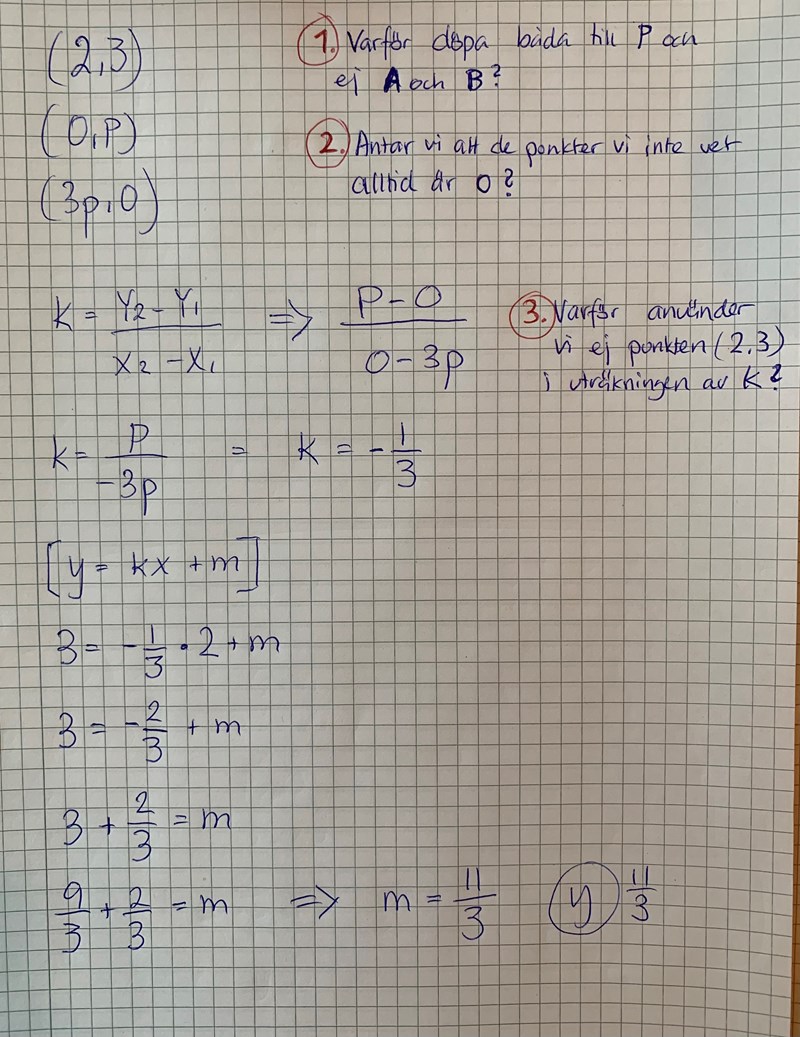 (2,3)
1. Varför döpa båda till P och
ej A och B?
(0,P)
2. Antar vi att de punkter vi inte vet
alltid är 0?
(3p,0)
K = Y2-Y1 / X2-X1 => P-0 / 0-3p
3. Varför använder
vi ej punkten (2,3)
i uträkningen av K?
k = P / -3p = K = -1/3
[y = kx + m]
3 = -1/3 · 2 + m
3 = -2/3 + m
3 + 2/3 = m
9/3 + 2/3 = m => m = 11/3 y 11/3